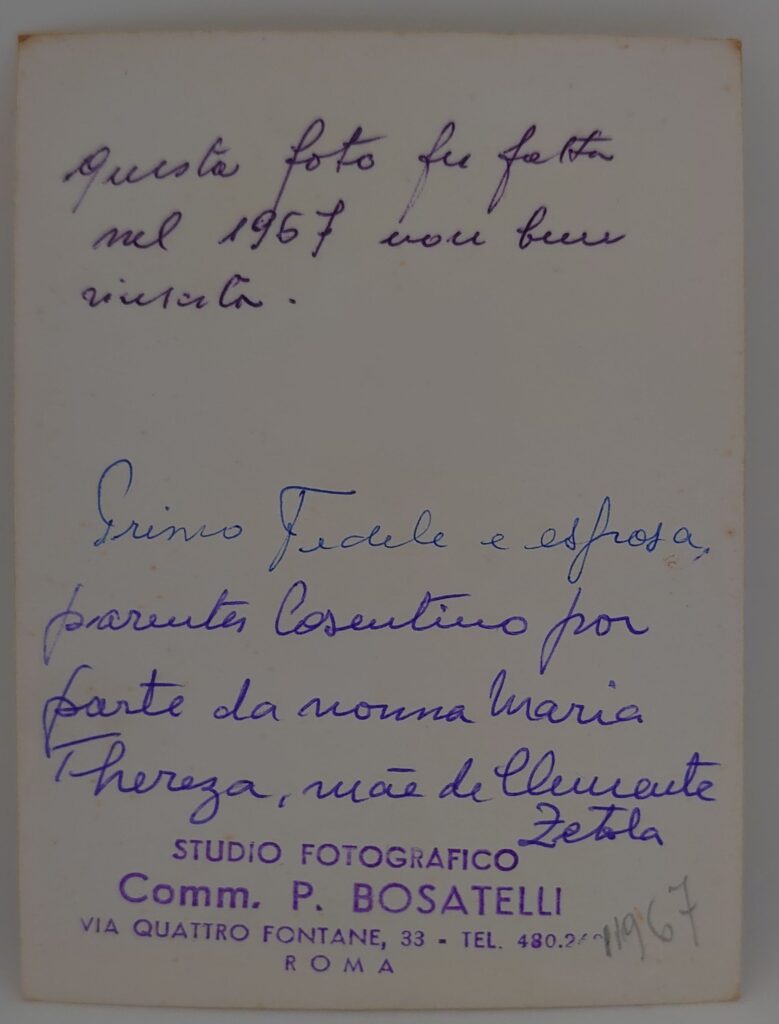 questa foto fu fatta
nel 1967 non bene
riuscita.
Primo Fedele e esposa,
parentes Cosentino por
parte da nonna Maria
Thereza, mãe de Clemente
Zetola
STUDIO FOTOGRAFICO
Comm. P. BOSATELLI
VIA QUATTRO FONTANE, 33 - TEL. 480.2
ROMA
1967